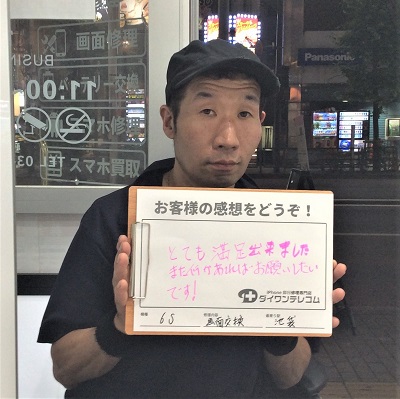 画面修理
BUSIN
11:00
スマホ買取
TEL 03
Panasonic
お客様の感想をどうぞ!
とても満足出来ました
また何かあればお願いしたい
です!
iPhone 即日修理専門店
ダイワンテレコム
機種 6S 修理内容 画面交換 最寄り駅 池袋